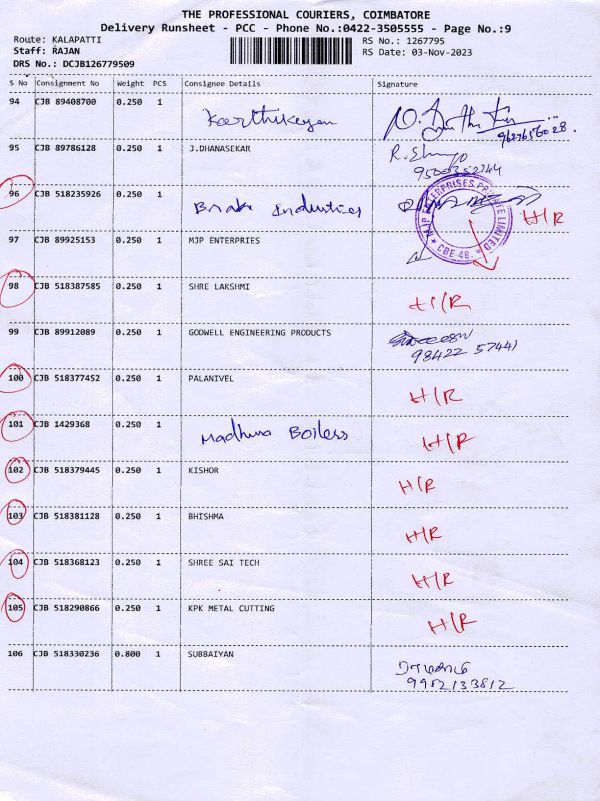 THE PROFESSIONAL COURIERS, COIMBATORE
Delivery Runsheet - PCC - Phone No.:0422-3505555 - Page No.:9
Route: KALAPATTI
RS No.: 1267795
Staff: RAJAN
RS Date: 03-Nov-2023
DRS No.: DCJB126779509
S No Consignment No Weight PCS Consignee Details Signature
94 CJB 89408700 0.250 1 Karthikeyan
9627656028.
95 CJB 89786128 0.250 1 J.DHANASEKAR
9500352744
96 CJB 518235926 0.250 1 Brak Industries H/R
MJP ENTERPRISES PRIVATE LIMITED
* CBE-48. *
97 CJB 89925153 0.250 1 MJP ENTERPRIES
98 CJB 518387585 0.250 1 SHRE LAKSHMI H/R
99 CJB 89912089 0.250 1 GODWELL ENGINEERING PRODUCTS
98422 57441
100 CJB 518377452 0.250 1 PALANIVEL H/R
101 CJB 1429368 0.250 1 Madhura Boilers H/R
102 CJB 518379445 0.250 1 KISHOR H/R
103 CJB 518381128 0.250 1 BHISHMA H/R
104 CJB 518368123 0.250 1 SHREE SAI TECH H/R
105 CJB 518290866 0.250 1 KPK METAL CUTTING H/R
106 CJB 518330236 0.800 1 SUBBAIYAN
9952133812